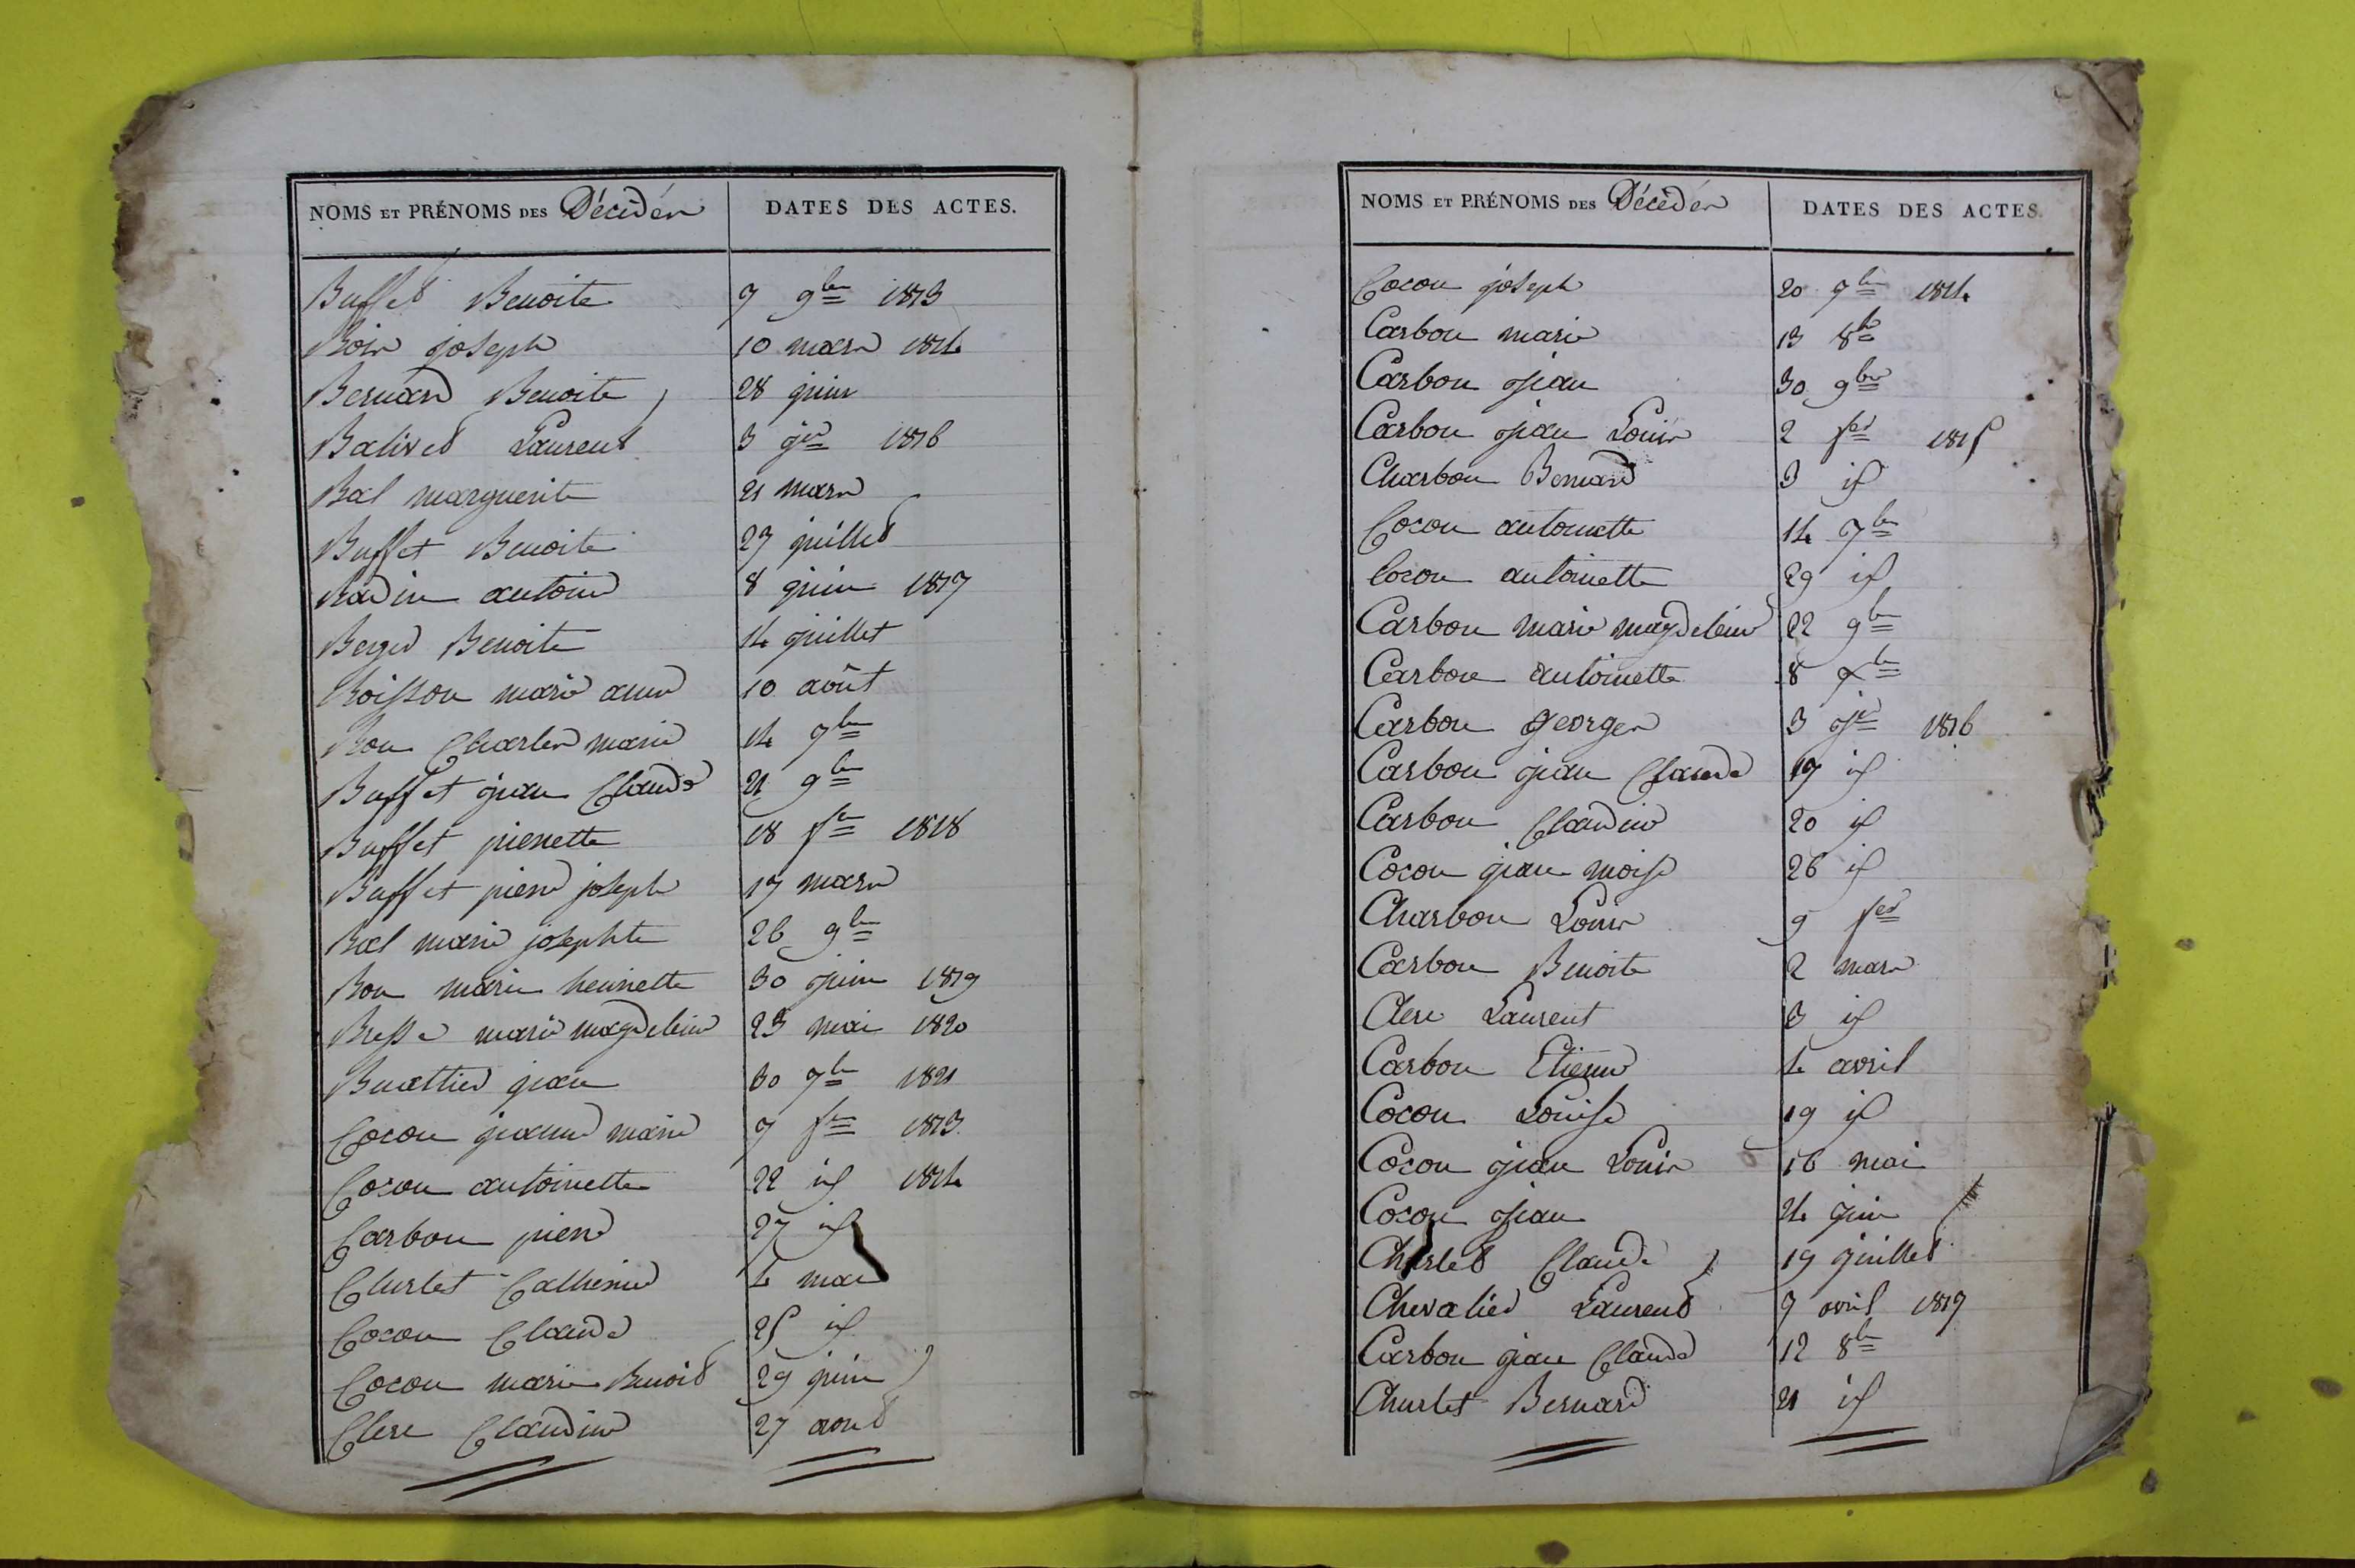 NOMS ET PRÉNOMS DES Décédés DATES DES ACTES.
Buffet Benoite 7 9bre 1813
Boin joseph 10 mars 1814
Bernard Benoite 28 juin
Balivet Laurent 3 jer 1816
Bal marguerite 21 mars
Buffet Benoite 27 juillet
Badin antoine 8 juin 1817
Berger Benoite 14 juillet
Boisson marie anne 10 août
Bon Charles marie 14 7bre
Buffet jean Claude 21 9bre
Buffet pierrette 18 fer 1818
Buffet pierre joseph 17 mars
Bal marie josephte 26 9bre
Bon marie henriette 30 juin 1819
Bresse marie magdeleine 23 mai 1820
Buattier jean 30 7bre 1821
Cocon jeanne marie 7 fer 1813
Cocon antoinette 22 id 1814
Carbon pierre 27 id
Churlet Catherine 4 mai
Cocon Claude 25 id
Cocon marie Benoit 29 juin
Clerc Claudine 27 aout
NOMS ET PRÉNOMS DES Décédés DATES DES ACTES.
Cocon joseph 20 9bre 1814
Carbon marie 13 8bre
Carbon jean 30 9bre
Carbon jean Louis 2 fer 1815
Charbon Bernard 3 id
Cocon antoinette 14 7bre
Cocon antoinette 29 id
Carbon marie magdeleine 22 9bre
Carbon antoinette 8 xbre
Carbon georges 3 jer 1816
Carbon jean Claude 17 id
Carbon Claudine 20 id
Cocon jean moise 26 id
Charbon Louis 9 fer
Carbon Benoite 2 mars
Clerc Laurent 3 id
Carbon Etienne 4 avril
Cocon Louise 19 id
Cocon jean Louis 16 mai
Cocon jean 24 juin
Churlet Claude 19 juillet
Chevalier Laurent 7 avril 1817
Carbon jean Claude 12 8bre
Churlet Bernard 21 id